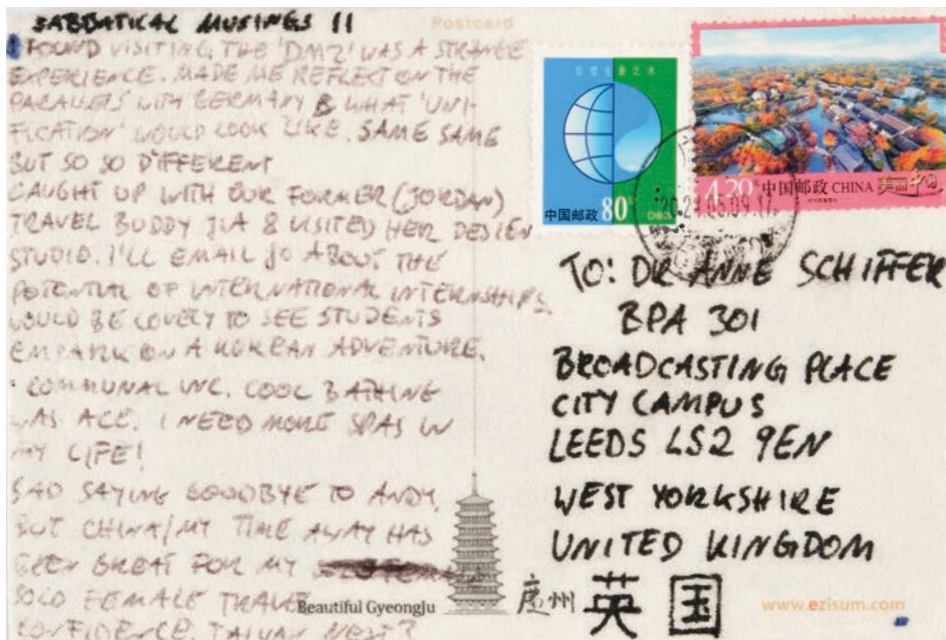 SABBATICAL MUSINGS 11
Postcard
I FOUND VISITING THE 'DMZ' WAS A STRANGE
EXPERIENCE. MADE ME REFLECT ON THE
PARALLELS WITH GERMANY & WHAT 'UNI-
FICATION' WOULD LOOK LIKE. SAME SAME
BUT SO SO DIFFERENT
CAUGHT UP WITH OUR FORMER (JORDAN)
TRAVEL BUDDY JIA & VISITED HER DESIGN
STUDIO. I'LL EMAIL JO ABOUT THE
POTENTIAL OF INTERNATIONAL INTERNSHIPS.
WOULD BE LOVELY TO SEE STUDENTS
EMBARK ON A KOREAN ADVENTURE.
COMMUNAL INC. COOL BATHING
WAS ACE. I NEED MORE SPAS IN
MY LIFE!
SAD SAYING GOODBYE TO ANDY,
BUT CHINA/MY TIME AWAY HAS
BEEN GREAT FOR MY
SOLO FEMALE TRAVEL
CONFIDENCE. TAIWAN NEXT?
Beautiful GyeongJu
中国邮政 80 CHINA
4.20 中国邮政 CHINA 美丽中国
TO: DR ANNE SCHIFFER
BPA 301
BROADCASTING PLACE
CITY CAMPUS
LEEDS LS2 9EN
WEST YORKSHIRE
UNITED KINGDOM
英国
www.ezisum.com